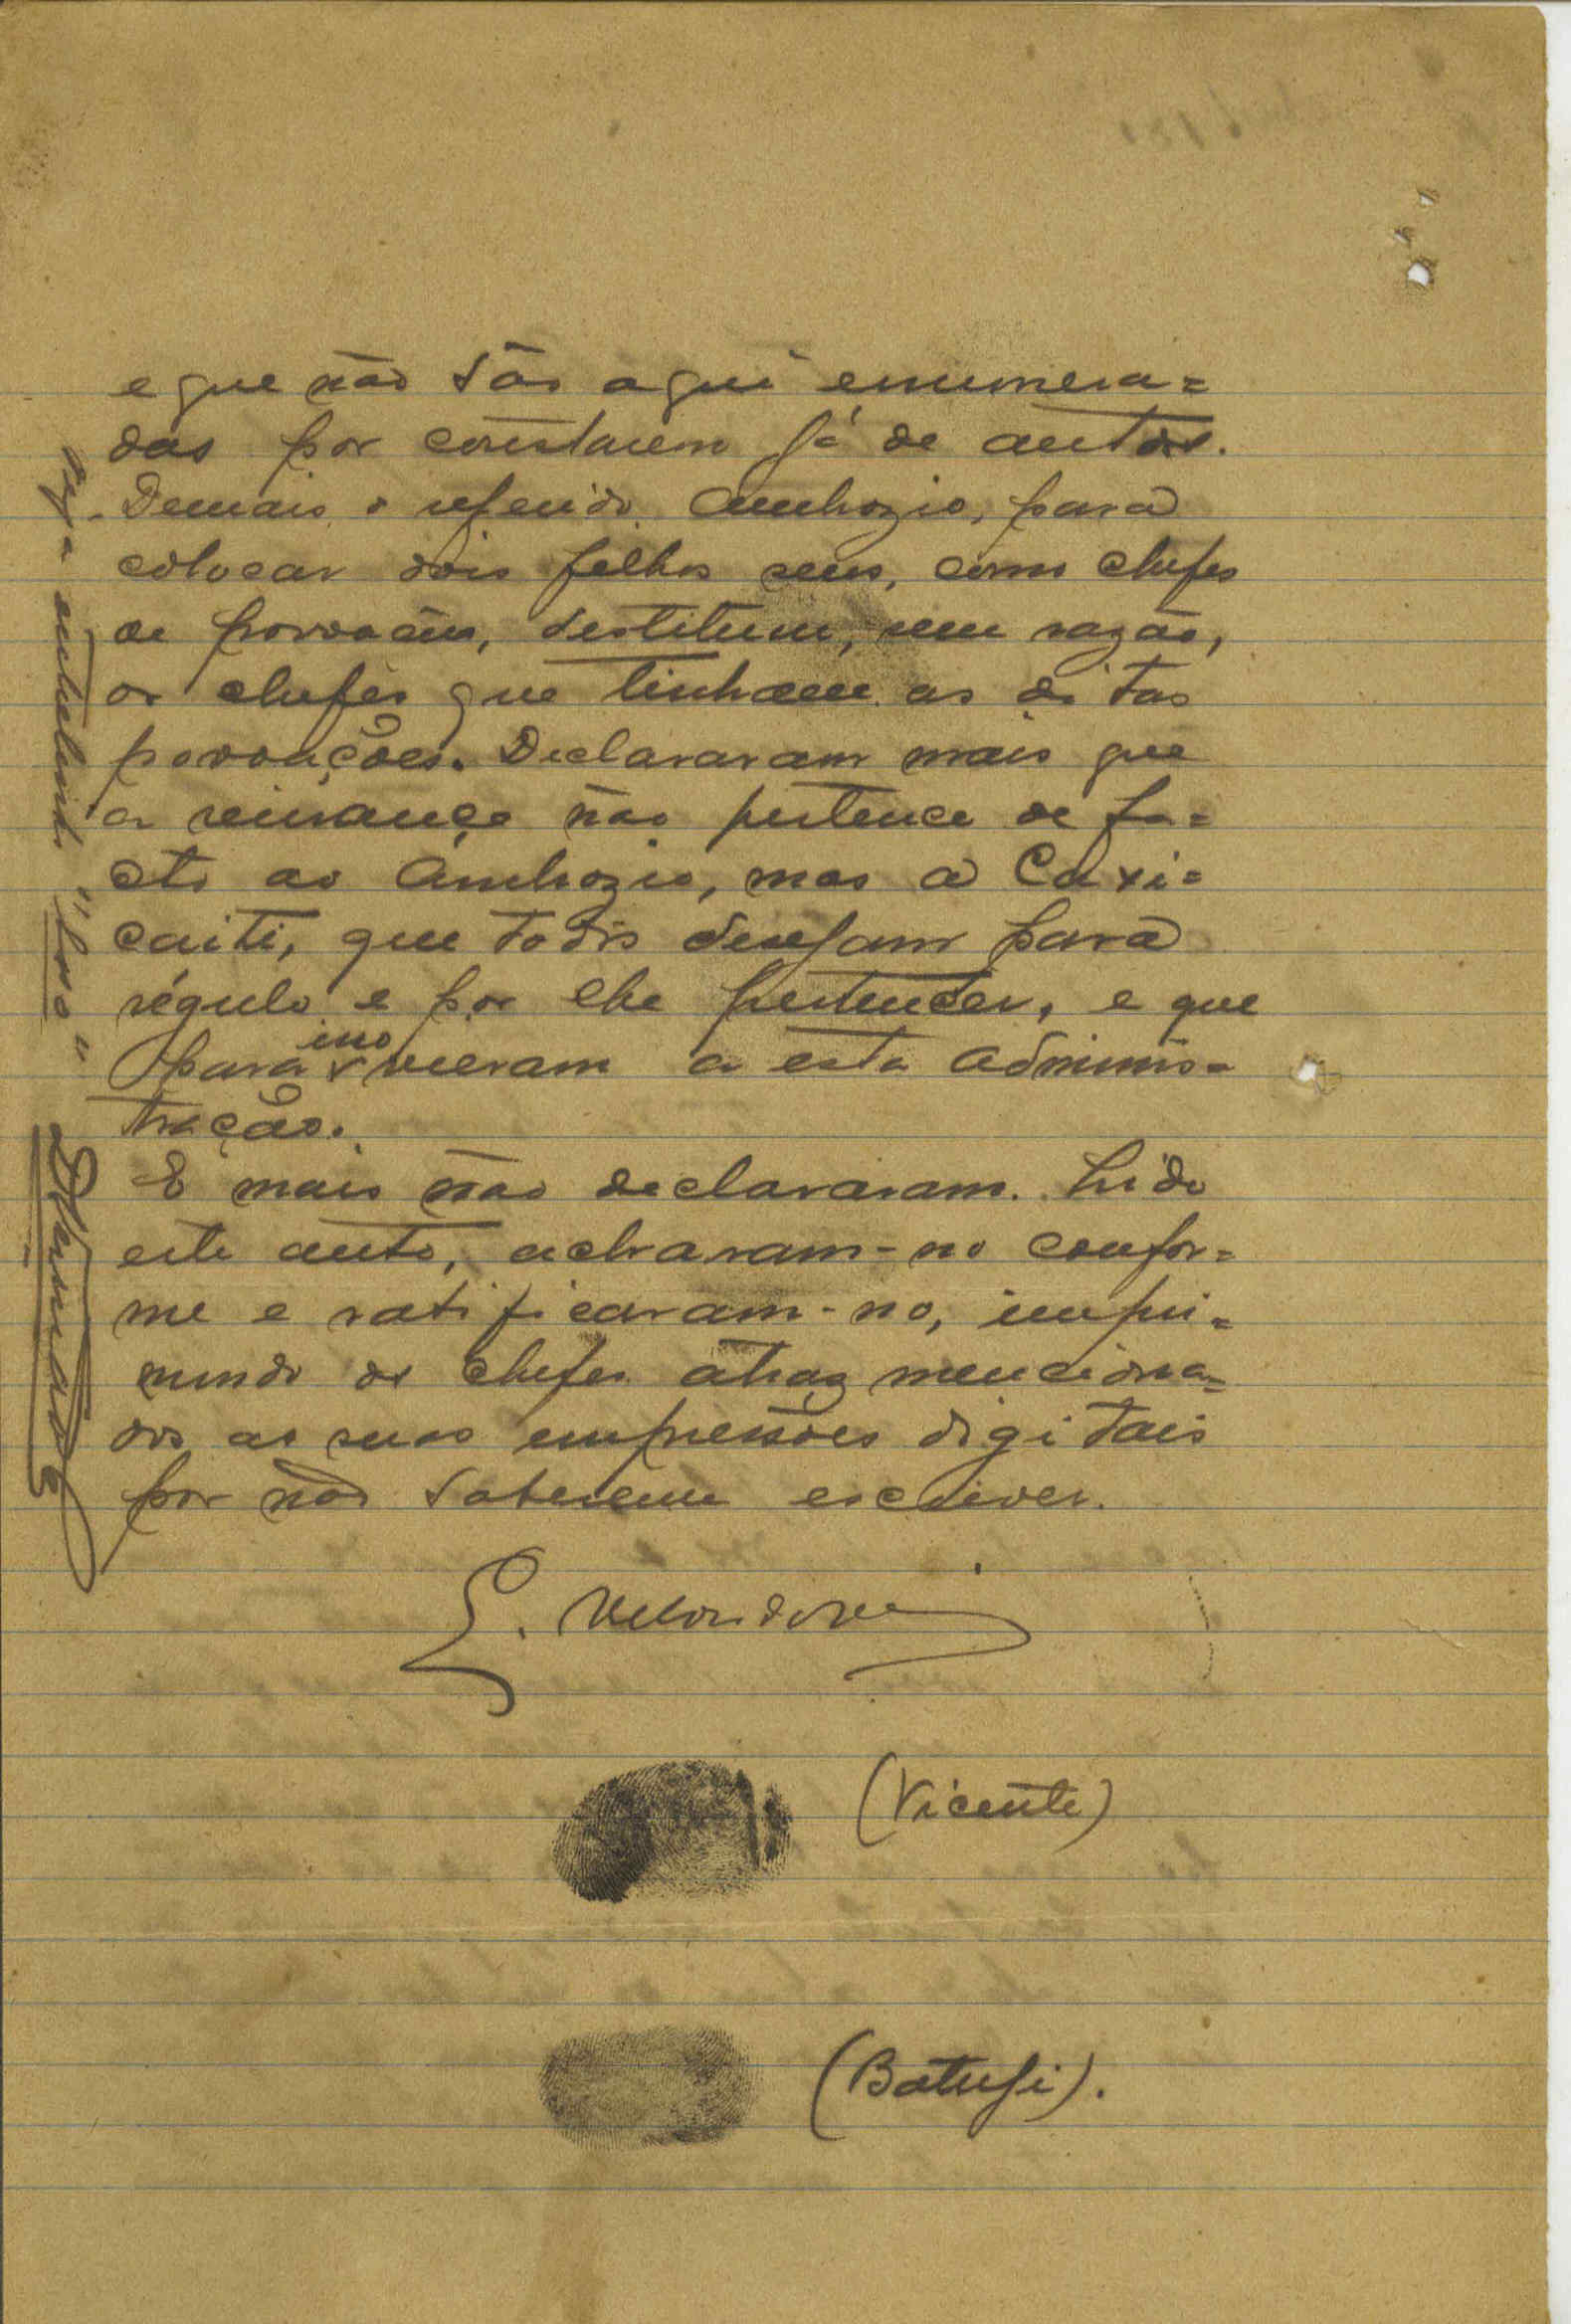 e que não são aqui enumera=
das por constarem já de autos.
Demais o referido Ambrozio, para
colocar dois filhos seus, como chefes
de povoação, destituiu, sem razão,
os chefes que tinham as ditas
povoações. Declararam mais que
a não pertence de fa=
cto ao Ambrozio, mas a Caxi=
caiti, que todos desejam para
régulo e por lhe pertencer, e que
para isso vieram a esta Adminis=
tração.
E mais não declararam. Lido
este auto, acharam-no confor=
me e ratificaram-no, impri=
mindo os chefes atraz menciona=
dos as suas impressões digitais
por não saberem escrever.
(Vicente)
(Batufi).
entrelinha "isso"